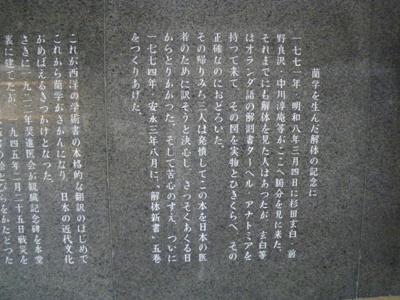 蘭学を生んだ解体の記念に
一七七一年・明和八年三月四日に杉田玄白・前
野良沢・中川淳庵等がここへ腑分を見に来た。
それまでにも解体を見た人はあったが、玄白等
はオランダ語の解剖書ターヘル・アナトミアを
持って来て、その図を実物とひきくらべ、その
正確なのにおどろいた。
その帰りみち三人は発憤してこの本を日本の医
者のために訳そうと決心し、さっそくあくる日
からとりかかった。そして苦心のすえ、ついに
一七七四年・安永三年八月に、「解体新書」五巻
をつくりあげた。
これが西洋の学術書の本格的な翻訳のはじめで
これから蘭学がさかんになり、日本の近代文化
がめばえるきっかけとなった。
さきに一九二二年奨進医会が観臓記念碑を本堂
裏に建てたが、一九四五年二月二十五日戦災を
とびらをかたどった